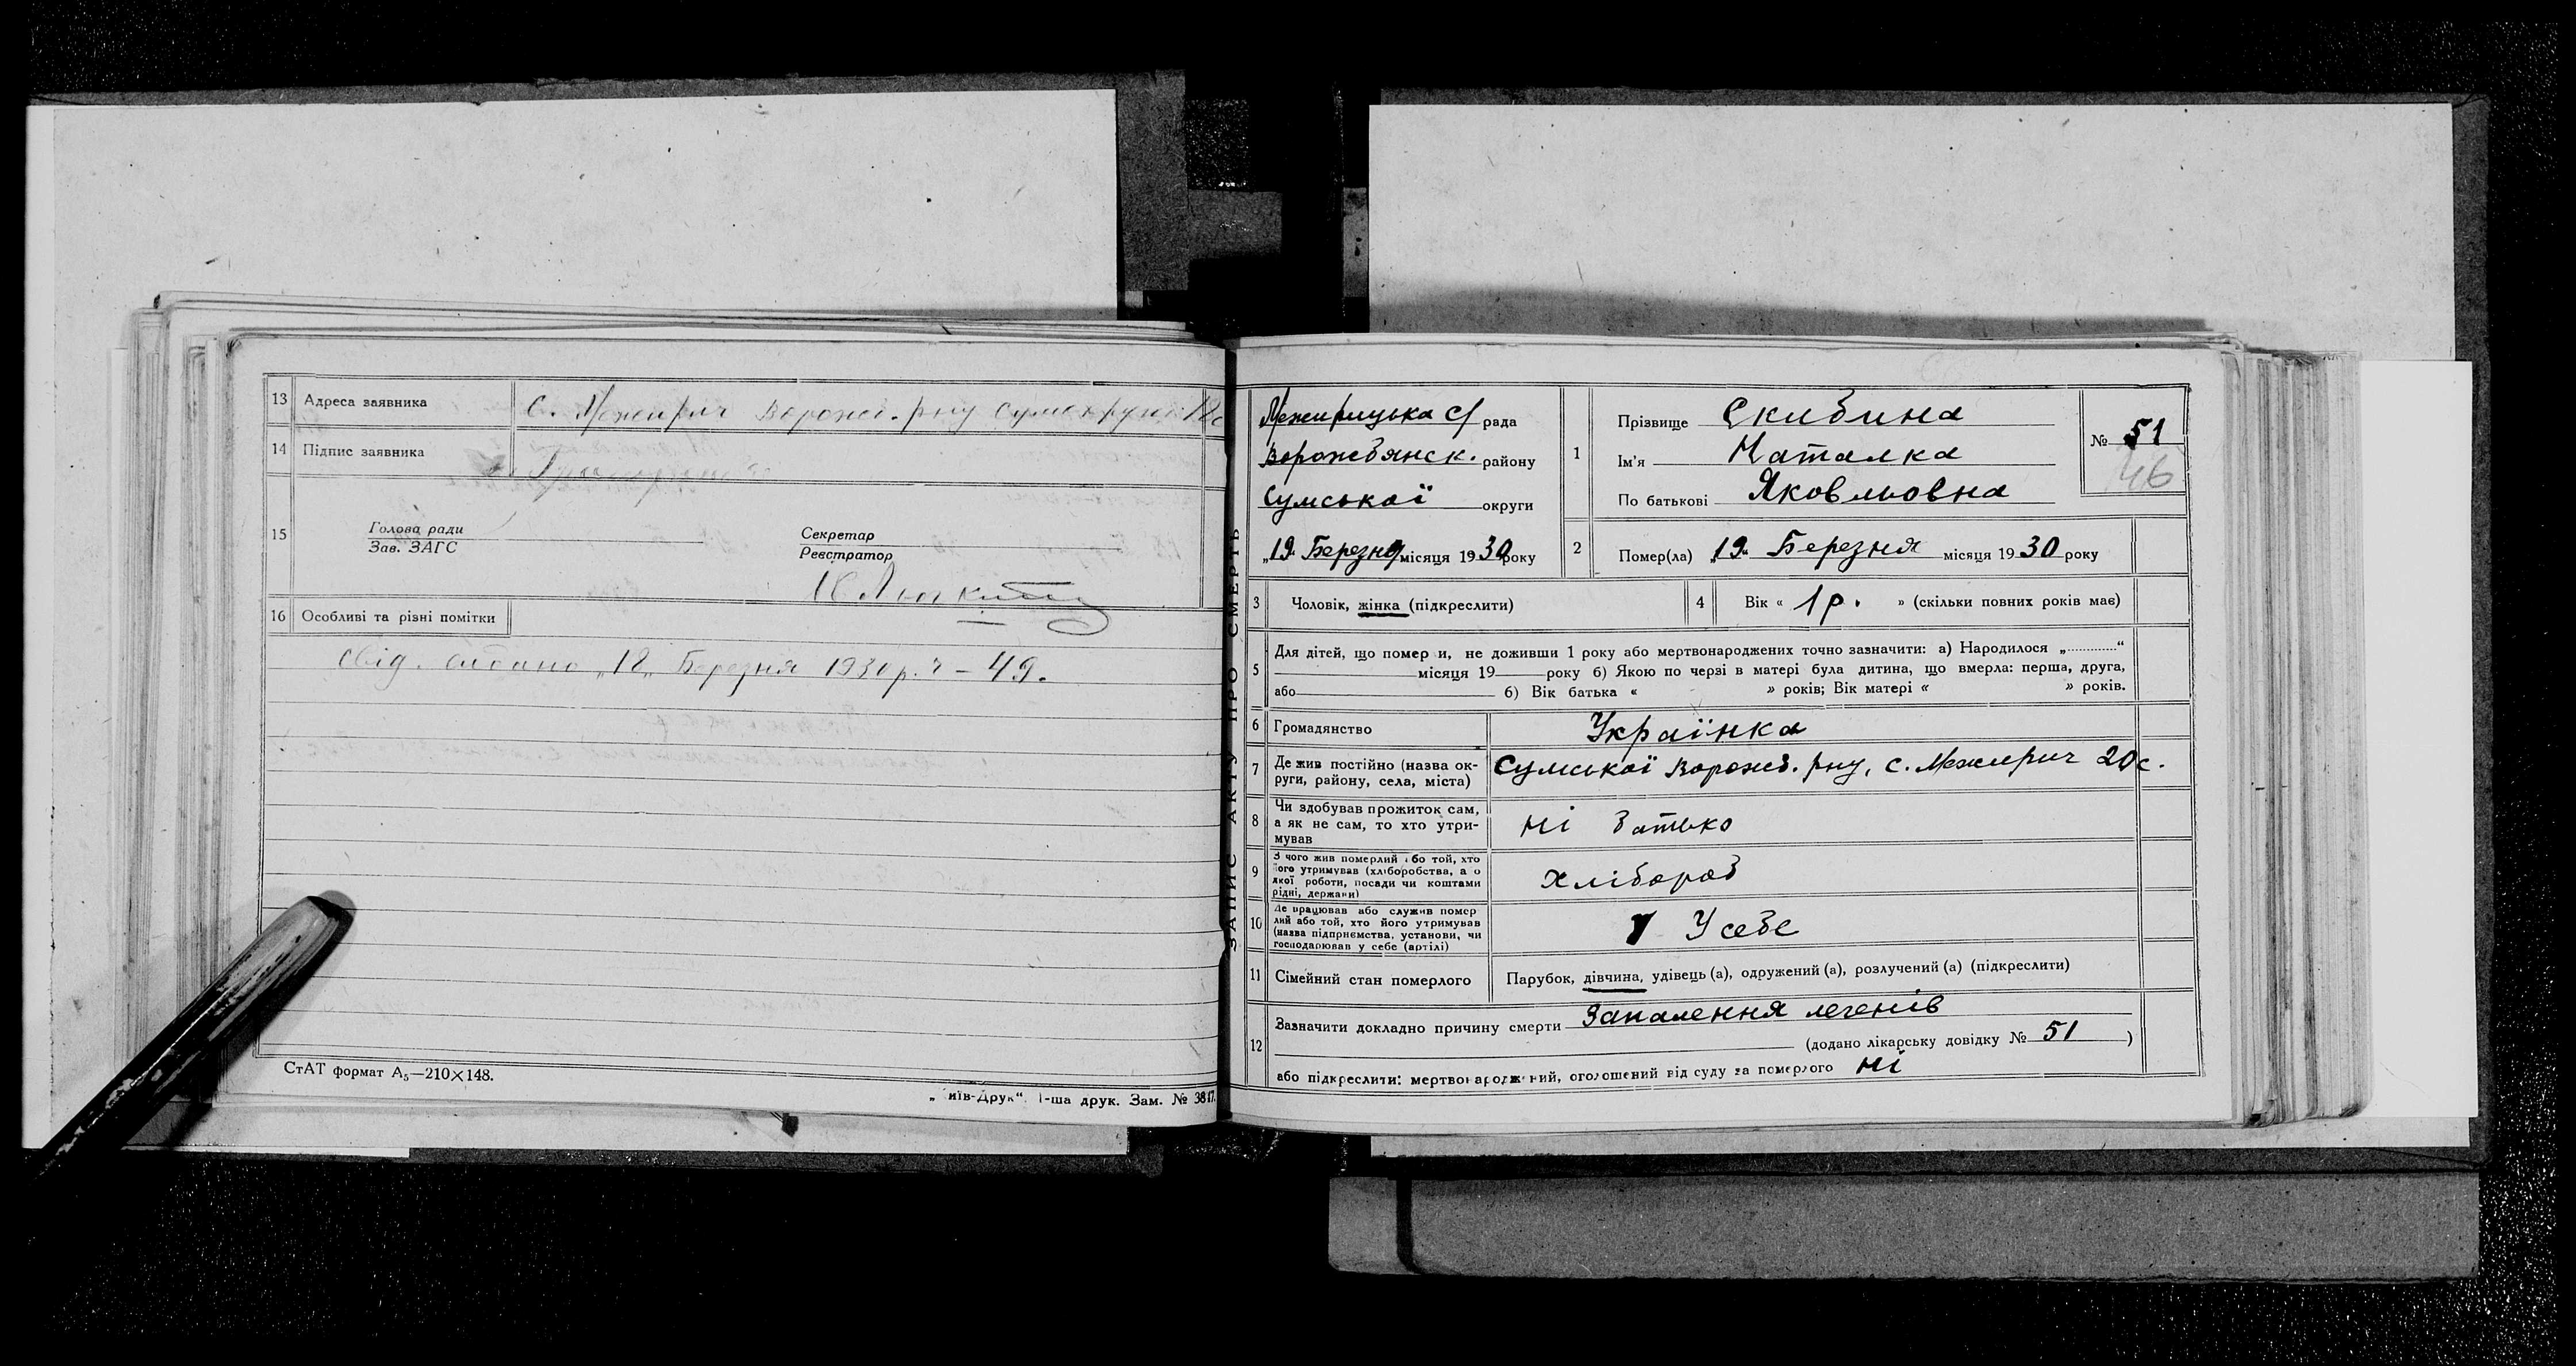 13 Адреса заявника С. Межирич Ворожб. рну Сумокруги 18 с
14 Підпис заявника
15 Голова ради
Зав. ЗАГС
Секретар
Реєстратор
16 Особливі та різні помітки
свід. видано „18„ Березня 1930 р. ч – 49.
СтАТ формат А₅—210×148.
„ иїв-Друк“. 1-ша друк. Зам. № 3817.
ЗАПИС АКТУ ПРО СМЕРТЬ
Межирицька с/ рада
Ворожбянск. району
Сумської округи
„19„ Березня місяця 1930 року
1 Прізвище Скибина
Ім'я Наталка
По батькові Яковльовна
№ 51
46
2 Помер(ла) „19„ Березня місяця 1930 року
3 Чоловік, жінка (підкреслити)
4 Вік « 1 р. » (скільки повних років має)
5 Для дітей, що помер и, не доживши 1 року або мертвонароджених точно зазначити: а) Народилося „.............“
місяця 19 року б) Якою по черзі в матері була дитина, що вмерла: перша, друга,
або б) Вік батька « » років; Вік матері « » років.
6 Громадянство Українка
7 Де жив постійно (назва ок-
руги, району, села, міста) Сумської Ворожб. рну, с. Межирич 20 с.
8 Чи здобував прожиток сам,
а як не сам, то хто утри-
мував Ні батько
9 З чого жив померлий або той, хто
його утримував (хліборобства, а о
якої роботи, посади чи коштами
рідні, держави) хлібороб
10 Де працював або служив помер
лий або той, хто його утримував
(назва підприємства, установи, чи
господарював у себе (артілі) У себе
11 Сімейний стан померлого Парубок, дівчина, удівець (а), одружений (а), розлучений (а) (підкреслити)
12 Зазначити докладно причину смерти Запалення легенів
(додано лікарську довідку № 51 )
або підкреслити: мертвонароджений, оголошений від суду за померлого Ні